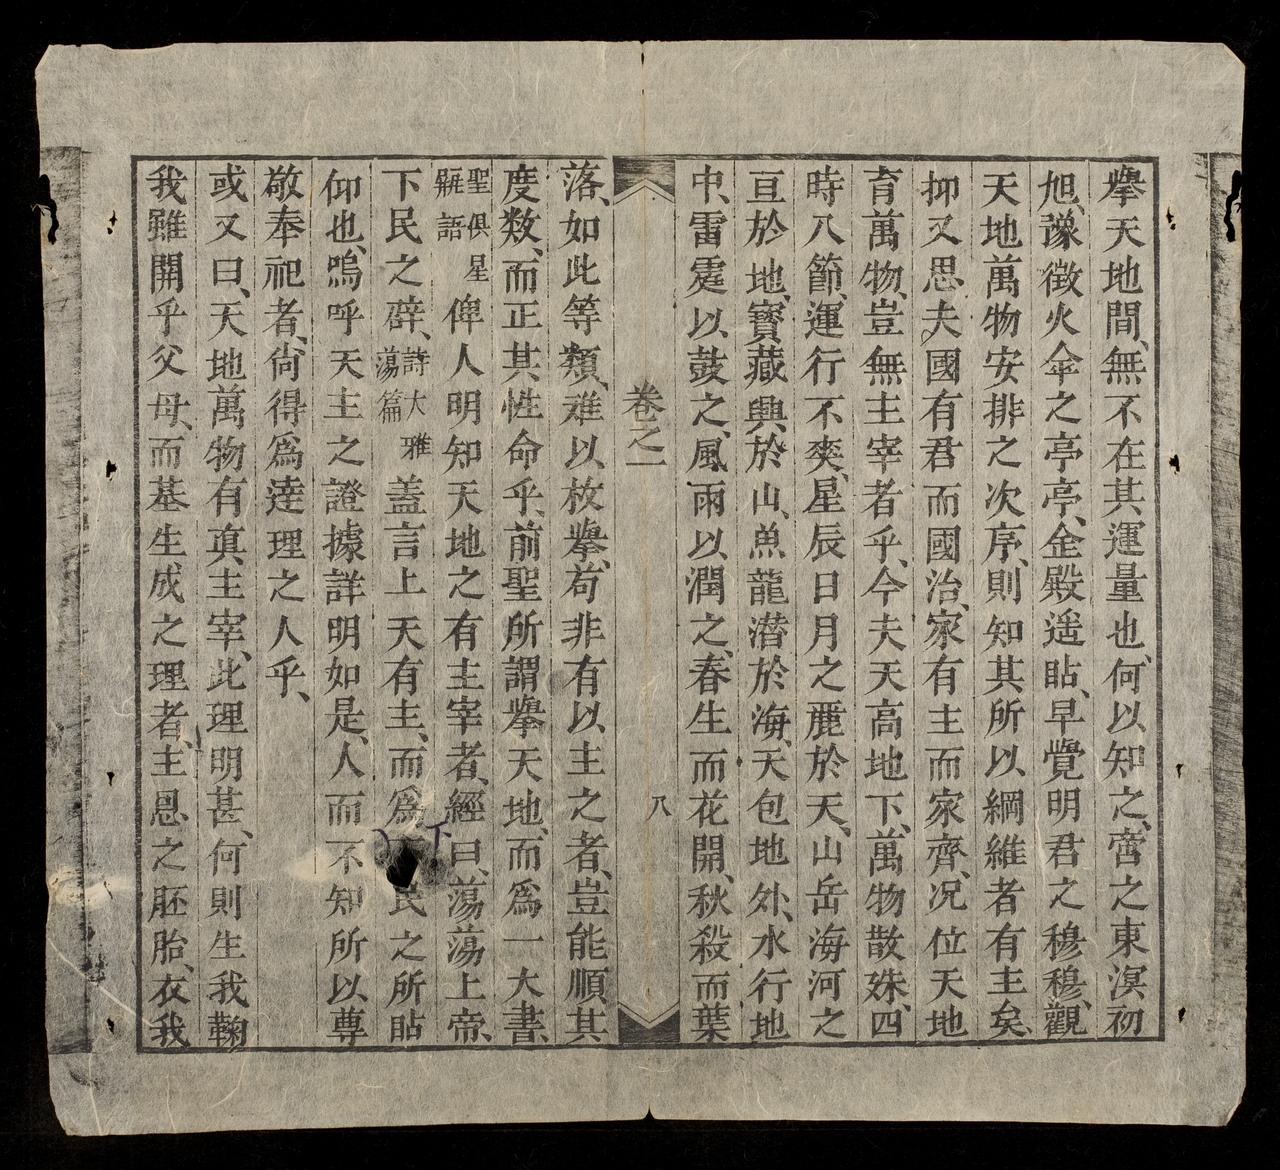 擧天地間、無不在其運量也、何以知之、嘗之東溟初
旭、豫徵火傘之亭亭、金殿遥贴、早覺明君之穆穆、觀
天地萬物安排之次序、則知其所以綱維者有主矣、
抑又思夫國有君而國治、家有主而家齊、况位天地
育萬物、豈無主宰者乎、今夫天高地下、萬物散殊、四
時八節、運行不爽、星辰日月之麗於天、山岳海河之
亘於地、寶藏興於山、魚龍潛於海、天包地外、水行地
中、雷霆以鼓之、風雨以潤之、春生而花開、秋殺而葉
卷之一
八
落、如此等類、难以枚擧、苟非有以主之者、豈能順其
度数、而正其性命乎、前聖所謂擧天地、而爲一大書、
聖俱星
語
俾人明知天地之有主宰者、經曰、蕩蕩上帝、
下民之辟、
詩大雅
蕩篇
盖言上天有主、而爲下民之所贴
仰也、嗚呼天主之證據詳明如是、人而不知所以尊
敬奉祀者、尙得爲達理之人乎、
或又曰、天地萬物有真主宰、此理明甚、何則生我鞠
我雖開乎父母、而基生成之理者、主恩之胚胎、衣我